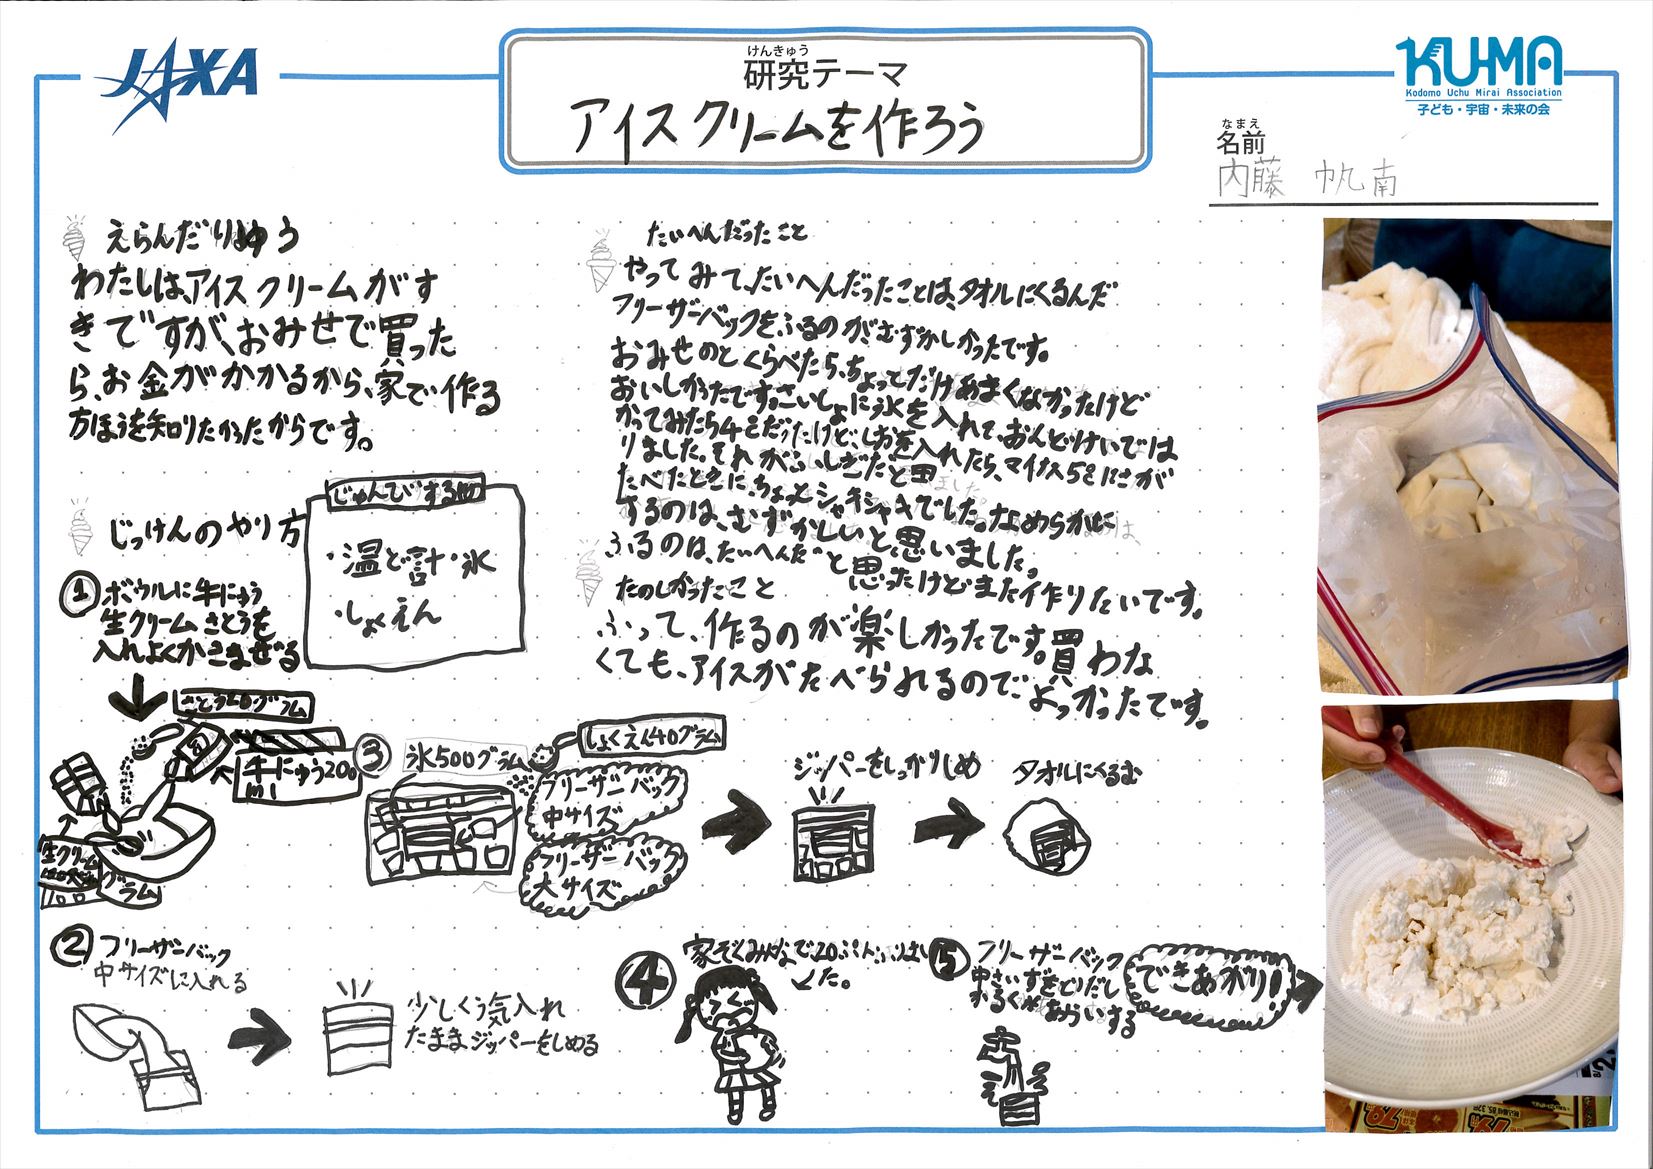 JAXA
けんきゅう
研究テーマ
アイスクリームを作ろう
KU-MA
Kodomo Uchu Mirai Association
子ども・宇宙・未来の会
なまえ
名前
内藤 帆南
えらんだりゆう
わたしは、アイスクリームがす
きですが、おみせで買った
ら、お金がかかるから、家で作る
方ほうを知りたかったからです。
じっけんのやり方
じゅんびする物
・温ど計・氷
・しょくえん
① ボウルに牛にゅう
生クリームさとうを
入れよくかきまぜる
牛にゅう200
ml
生クリーム
グラム
② フリーザーバック
中サイズに入れる
少しくう気入れ
たままジッパーをしめる
③ 氷500グラム
しょくえん40グラム
フリーザーバック
中サイズ
フリーザーバック
大サイズ
ジッパーをしっかりしめ
タオルにくるむ
④ 家ぞくみんなで20ぷん
た。
⑤ フリーザーバック
中さいずをとりだし
かるく水あらいする
できあがり!
たいへんだったこと
やってみて、たいへんだったことは、タオルにくるんだ
フリーザーバックをふるのが、むずかしかったです。
おみせのとくらべたら、ちょってだけあまくなかったけど
おいしかったです。さいしょに氷を入れて、おんどけいでは
かってみたら4℃だったけど、しおを入れたら、マイナス5℃にさが
りました。それがふしぎだと思
たべたときに、ちょっとシャキシャキでした。なめらかに
するのは、むずかしいと思いました。
ふるのは、たいへんだと思ったけどまた作りたいです。
たのしかったこと
ふって、作るのが楽しかったです。買わな
くても、アイスがたべられるのでよっかったです。